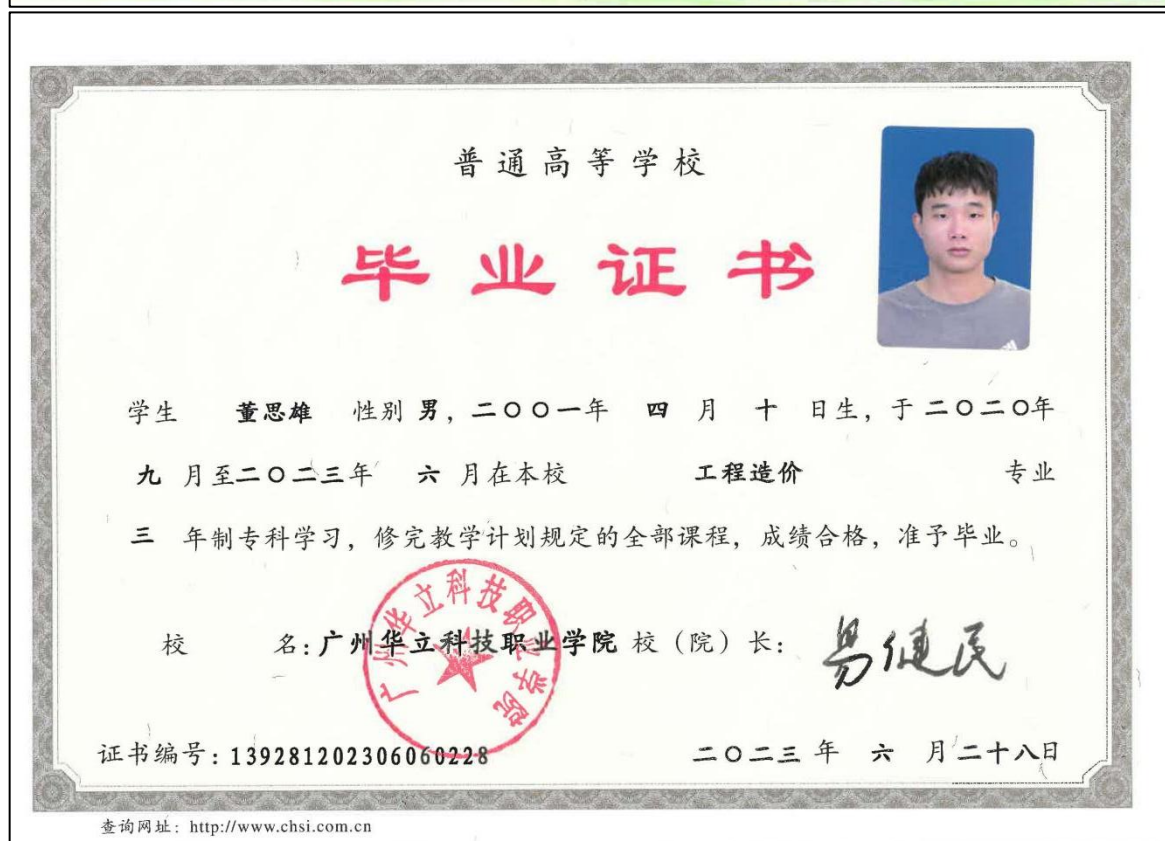 普通高等学校
毕业证书
学生 董思雄 性别 男，二〇〇一年 四 月 十 日生，于 二〇二〇年
九 月至二〇二三年 六 月在本校 工程造价 专业
三 年制专科学习，修完教学计划规定的全部课程，成绩合格，准予毕业。
校 名：广州华立科技职业学院 校（院）长：易健民
广州华立科技职业学院
证书编号：139281202306060228 二〇二三 年 六 月二十八日
查询网址：http://www.chsi.com.cn